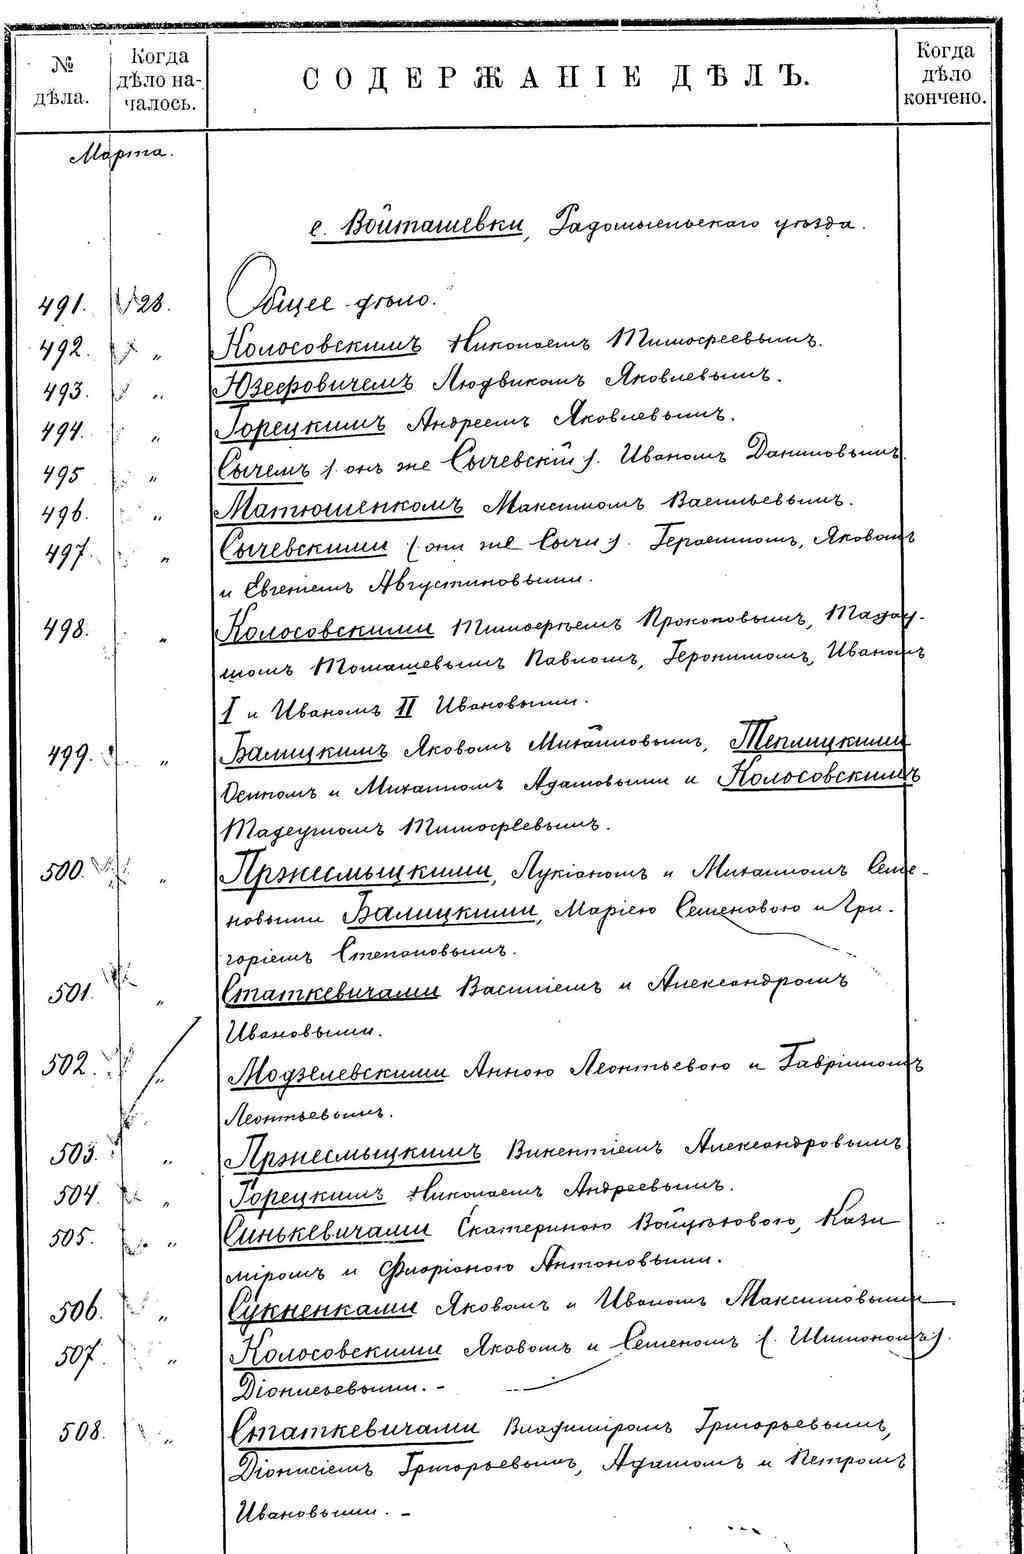 № дѣла.
Когда дѣло на-
чалось.
СОДЕРЖАНІЕ ДѢЛЪ.
Когда дѣло кончено.
Марта.
с. Войташевки, Радомысльскаго уѣзда.
491. 28. Общее дѣло.
492. „ Колосовскимъ Николаемъ Тимофеевымъ.
493. „ Юзефовичемъ Людвикомъ Яковлевымъ.
494. „ Горецкимъ Андреемъ Яковлевымъ.
495 „ Сычемъ /онъ же Сычевскій/. Иваномъ Даниловымъ.
496. „ Матюшенкомъ Максимомъ Васильевымъ.
497. „ Сычевскими (они же Сычи). Героимомъ, Яковомъ
и Евгеніемъ Августиновыми.
498. „ Колосовскими Тимофѣемъ Прокоповымъ, Тадау-
шомъ Томашевымъ Павломъ, Геронимомъ, Иваномъ
I и Иваномъ II Ивановыми.
499. „ Балицкимъ Яковомъ Михайловымъ, Теплицкими
Осипомъ и Михаиломъ Адамовыми и Колосовскимъ
Тадеушомъ Тимофѣевымъ.
500. „ Пржесмыцкими, Лукіаномъ и Михаиломъ Семе-
новыми Балицкими, Маріею Семеновою и Гри-
горіемъ Степановымъ.
501. „ Статкевичами Василіемъ и Александромъ
Ивановыми.
502. „ Модзелевскими Анною Леонтьевою и Гавріиломъ
Леонтьевымъ.
503. „ Пржесмыцкимъ Викентіемъ Александровымъ
504. „ Горецкимъ Николаемъ Андреевымъ.
505. „ Синькевичами Екатериною Войцѣховою, Кази
міромъ и Флоріаною Антоновыми.
506. „ Сукненками Яковомъ и Иваномъ Максимовыми.
507. „ Колосовскими Яковомъ и Семеномъ (Шимономъ).
Діонисьевыми. -
508. „ Статкевичами Владиміромъ Григорьевымъ,
Діонисіемъ Григорьевымъ, Адамомъ и Петромъ
Ивановыми. -